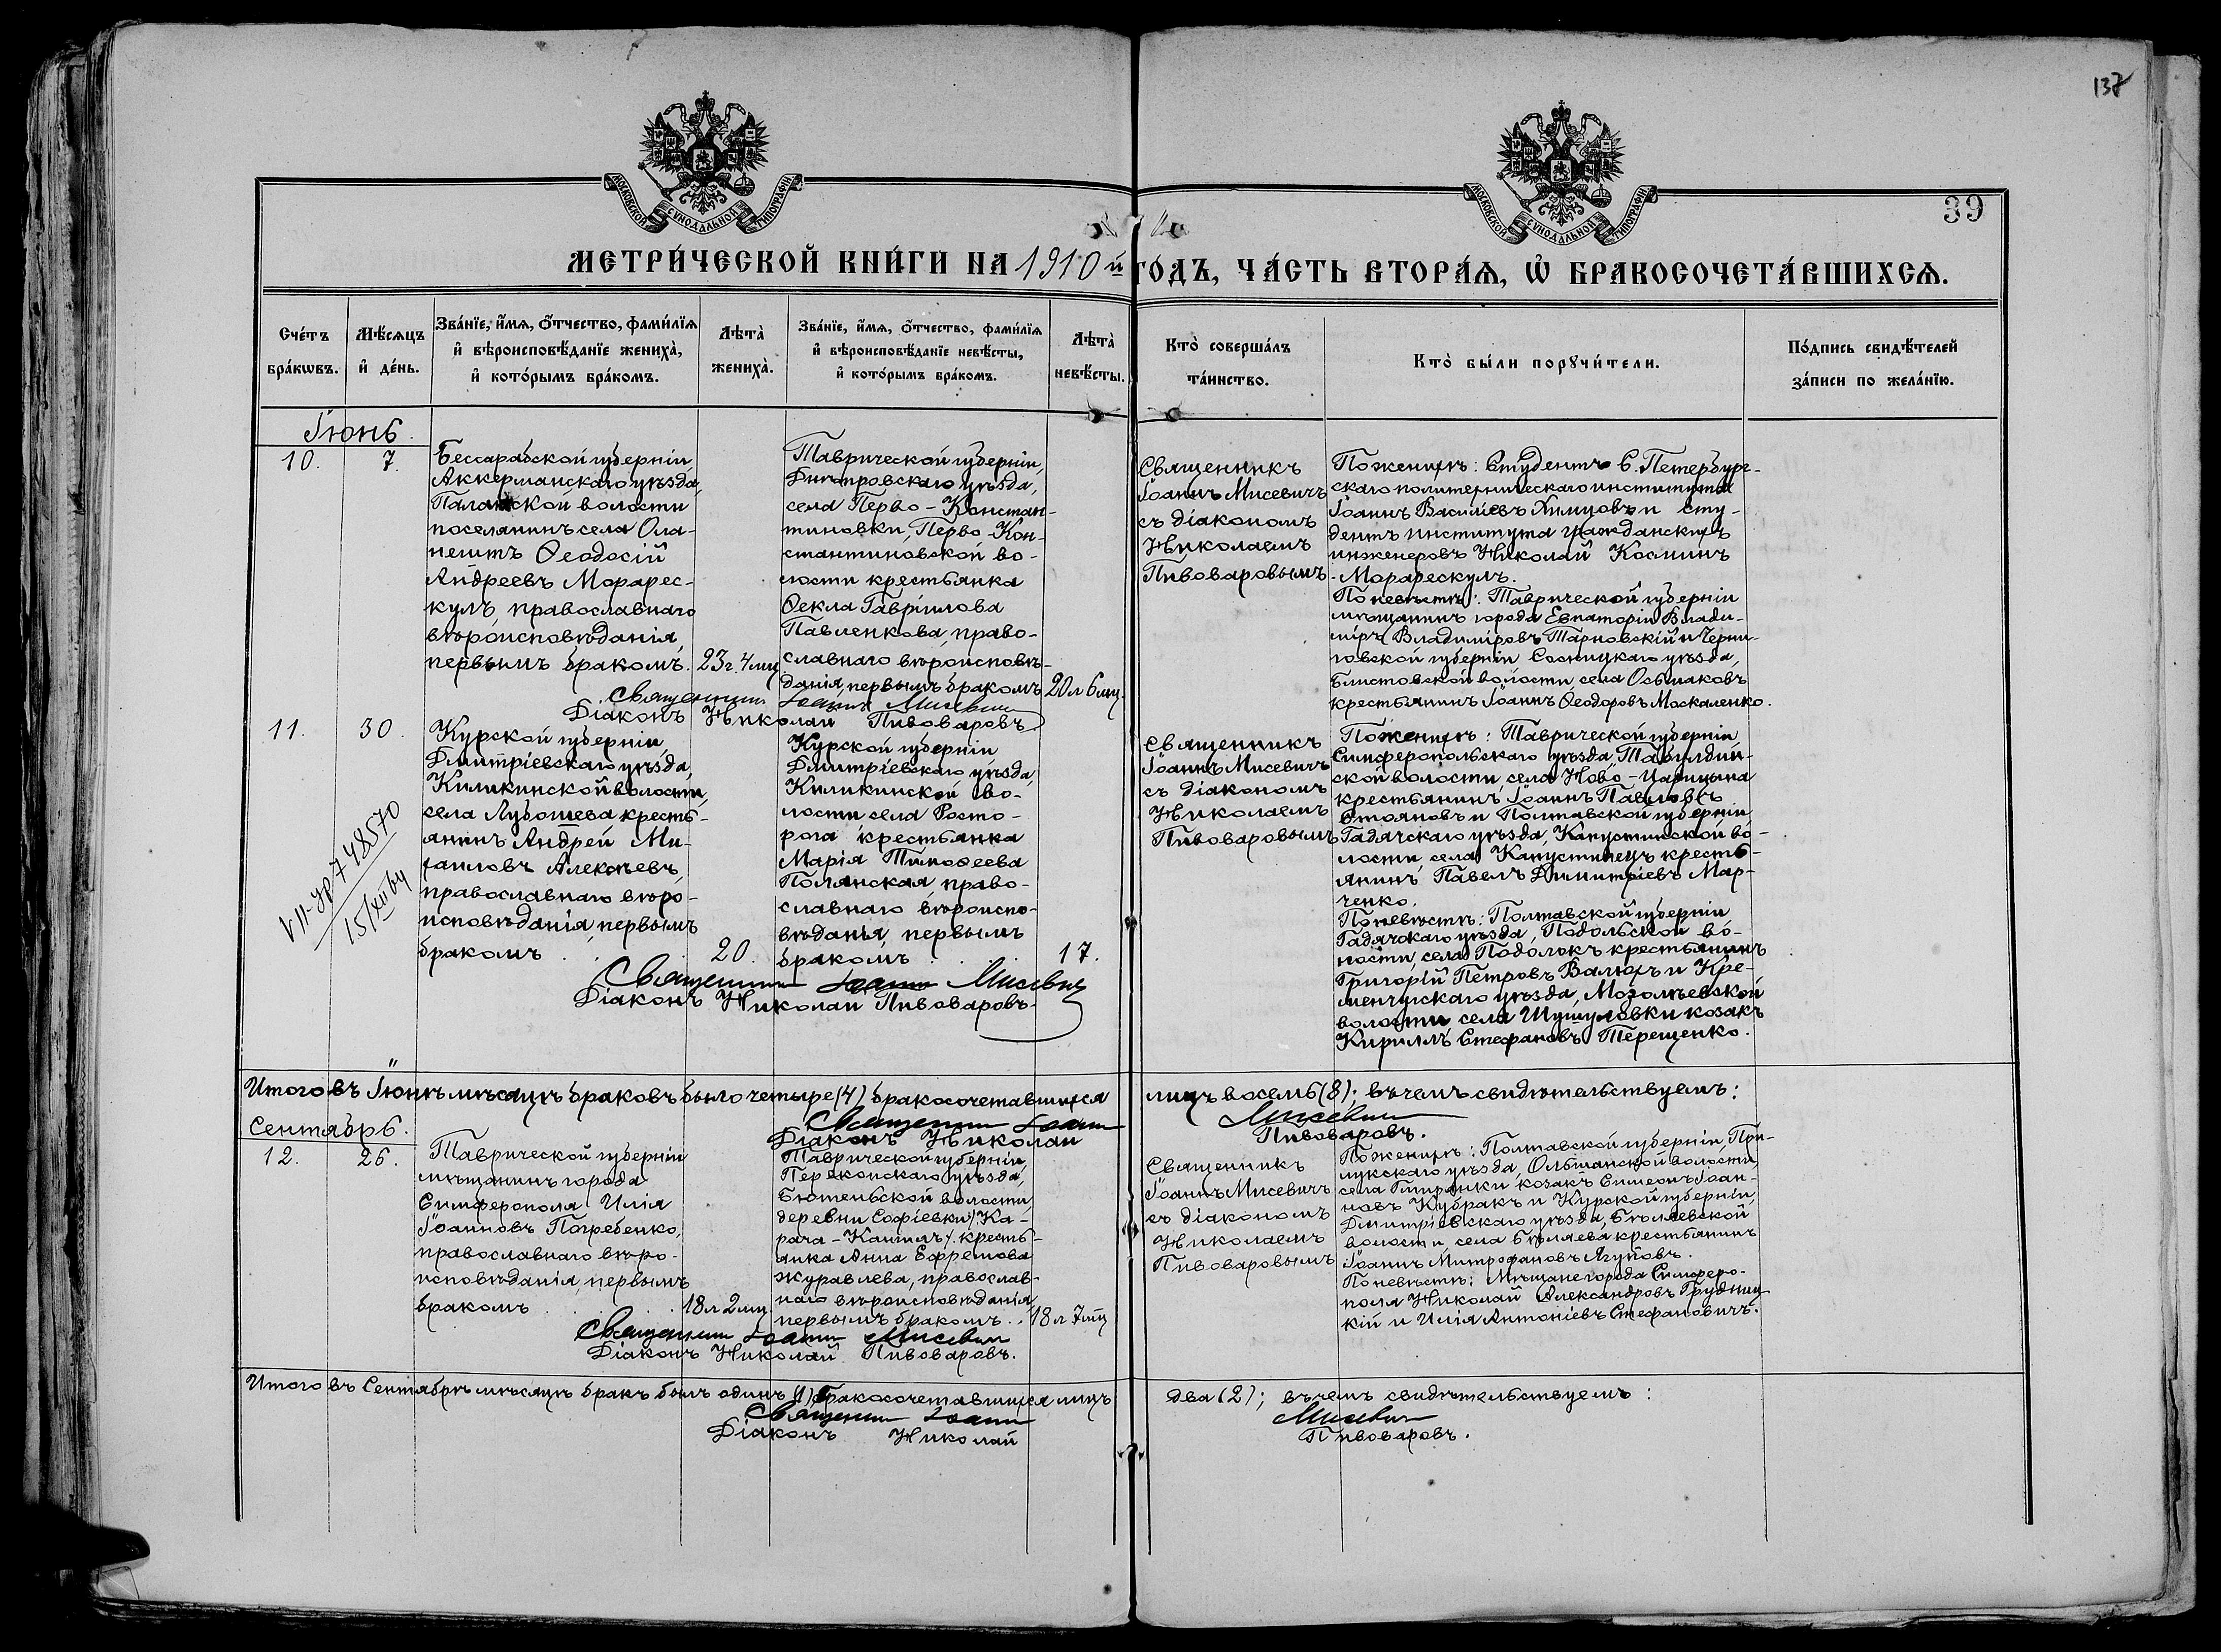 137
39
МОСКОВСКОЙ СѴНОДАЛЬНОЙ ТИПОГРАФІИ
МОСКОВСКОЙ СѴНОДАЛЬНОЙ ТИПОГРАФІИ
МЕТРИ́ЧЕСКОЙ КНИ́ГИ НА 1910й ГО́ДЪ, ЧА́СТЬ ВТОРА́Ѧ, Ѡ҆ БРАКОСОЧЕТА́ВШИХСѦ.
Сче́тъ бра́кѡвъ.
Мѣ́сѧцъ и҆ де́нь.
Зва́нїе, и҆́мѧ, ѻ҆́тчество, фами́лїѧ и҆ вѣроисповѣ́данїе жениха̀, и҆ кото́рымъ бра́комъ.
Лѣта̀ жениха̀.
Зва́нїе, и҆́мѧ, ѻ҆́тчество, фами́лїѧ и҆ вѣроисповѣ́данїе невѣ́сты, и҆ кото́рымъ бра́комъ.
Лѣта̀ невѣ́сты.
Кто̀ соверша́лъ та́инство.
Кто̀ бы́ли порꙋчи́тели.
По́дпись свидѣ́телей за́писи по жела́нїю.
Іюнь.
10.
7.
Бессарабской губерніи,
Аккерманскаго уѣзда,
Паланкской волости
поселянинъ села Ола-
нештъ Ѳеодосій
Андреевъ Морарес-
кулъ, православнаго
вѣроисповѣданія,
первымъ бракомъ.
23 г. 4 мц
Таврической губерніи,
Днѣпровскаго уѣзда,
села Перво-Констан-
тиновки, Перво-Кон-
стантиновской во-
лости крестьянка
Ѳекла Гавріилова
Павленкова, право-
славнаго вѣроисповѣ-
данія, первымъ бракомъ
20 л 6 мц.
Священникъ Іоаннъ Мисевичъ
Діаконъ Николай Пивоваровъ
Священникъ
Іоаннъ Мисевичъ
съ діакономъ
Николаемъ
Пивоваровымъ
По женихѣ: Студентъ С. Петербург-
скаго политехническаго института
Іоаннъ Василіевъ Химцовъ и сту-
дентъ института гражданскихъ
инженеровъ Николай Косминъ
Морарескулъ.
По невѣстѣ: Таврической губерніи
мѣщанинъ города Евпаторіи Влади-
міръ Владиміровъ Тарновскій и Черни-
говской губерніи Сосницкаго уѣзда,
Блистовской волости села Осьмаковъ
крестьянинъ Іоаннъ Ѳеодоровъ Москаленко.
11.
30.
VII-ур 748570
15/XII 64
Курской губерніи,
Дмитріевскаго уѣзда,
Киликинской волости,
села Лубошева кресть-
янинъ Андрей Ми-
хаиловъ Алексѣевъ,
православнаго вѣро-
исповѣданія, первымъ
бракомъ
20.
Курской губерніи
Дмитріевскаго уѣзда,
Киликинской во-
лости села Росто-
рога крестьянка
Марія Тимоѳеева
Полянская, право-
славнаго вѣроиспо-
вѣданія, первымъ
бракомъ
17.
Священникъ Іоаннъ Мисевичъ
Діаконъ Николай Пивоваровъ
Священникъ
Іоаннъ Мисевичъ
съ діакономъ
Николаемъ
Пивоваровымъ
По женихѣ: Таврической губерніи
Симферопольскаго уѣзда, Табулдин-
ской волости, села Ново-Царицына
крестьянинъ Іоаннъ Павловъ
Стояновъ и Полтавской губерніи
Гадячскаго уѣзда, Капустинской во-
лости, села Капустинецъ кресть-
янинъ Павелъ Димитріевъ Мар-
ченко.
По невѣстѣ: Полтавской губерніи
Гадячскаго уѣзда, Подольской во-
лости, села Подолокъ крестьянинъ
Григорій Петровъ Валюхъ и Кре-
менчугскаго уѣзда, Мозолѣевской
волости, села Шушуловки козакъ
Кириллъ Стефановъ Терещенко.
Итого въ Іюнѣ мѣсяцѣ браковъ было четыре (4) бракосочетавшихся лицъ восемь (8); въ чемъ свидѣтельствуемъ:
Священникъ Іоаннъ Мисевичъ
Діаконъ Николай Пивоваровъ.
Сентябрь.
12.
26.
Таврической губерніи
мѣщанинъ города
Симферополя Илія
Іоанновъ Погребенко,
православнаго вѣро-
исповѣданія, первымъ
бракомъ
18 л 2 мц
Таврической губерніи,
Перекопскаго уѣзда,
Бютеньской волости
деревни Софіевки /: Ка-
рача-Кангилъ :/ кресть-
янка Анна Ефремова
Журавлева, православ-
наго вѣроисповѣданія
первымъ бракомъ.
18 л 7 мц
Священникъ Іоаннъ Мисевичъ
Діаконъ Николай Пивоваровъ.
Священникъ
Іоаннъ Мисевичъ
съ діакономъ
Николаемъ
Пивоваровымъ
По женихѣ: Полтавской губерніи, При-
лукскаго уѣзда, Ольшанской волости,
села Гмирянки козакъ Симеонъ Іоан-
новъ Кубракъ и Курской губерніи
Дмитріевскаго уѣзда, Бѣляевской
волости, села Бѣляева крестьянинъ
Іоаннъ Митрофановъ Ягуповъ.
По невѣстѣ: Мѣщане города Симферо-
поля Николай Александровъ Грудниц-
кій и Илія Антоніевъ Стефановичъ.
Итого въ Сентябрѣ мѣсяцѣ бракъ былъ одинъ (1) бракосочетавшихся лицъ два (2); въ чемъ свидѣтельствуемъ:
Священникъ Іоаннъ Мисевичъ
Діаконъ Николай Пивоваровъ.